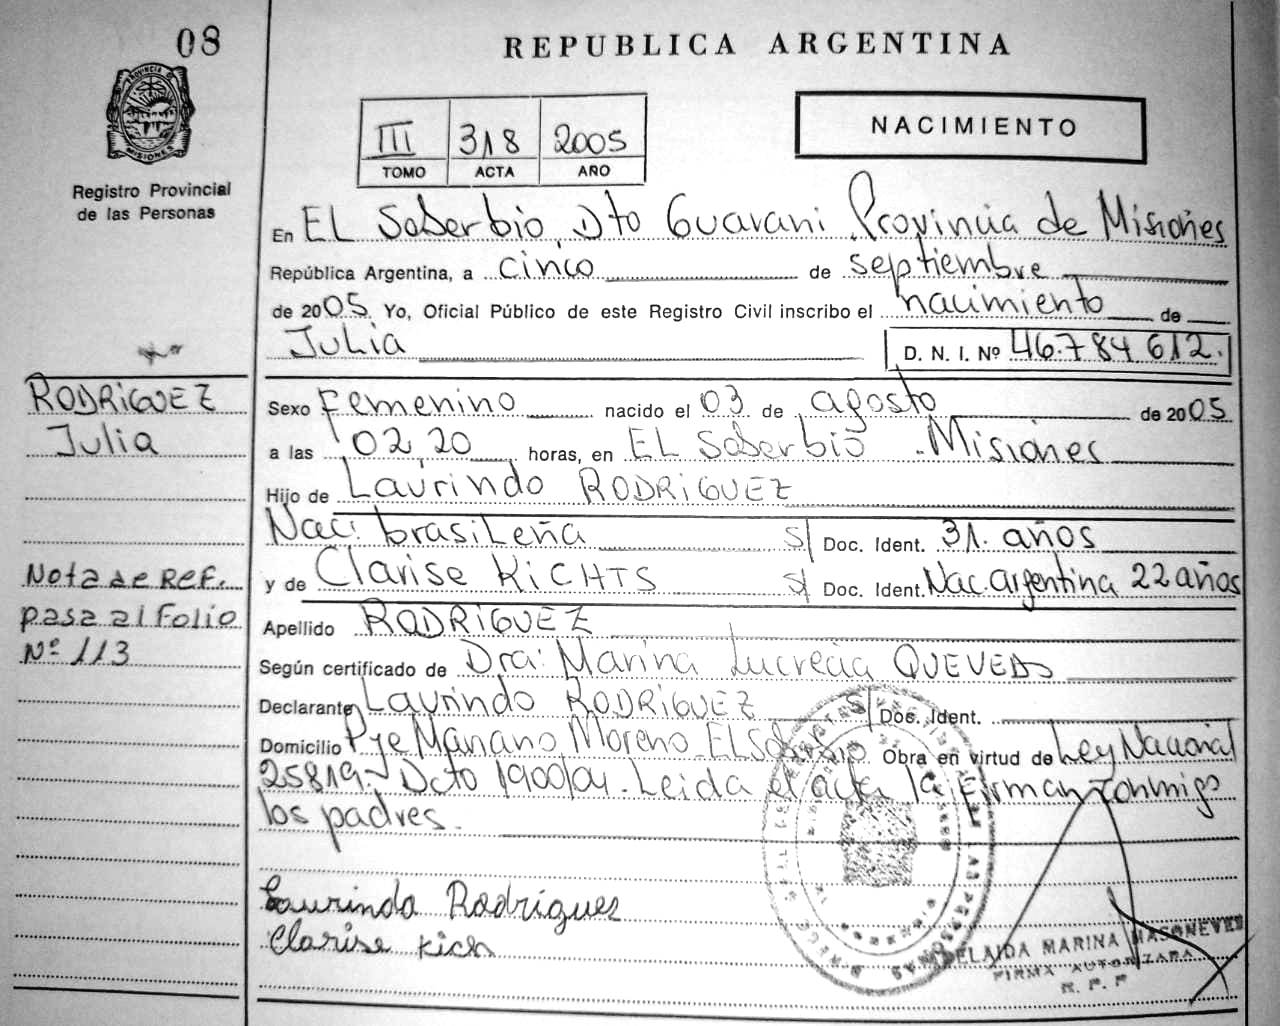 08
REPUBLICA ARGENTINA
PROVINCIA DE
MISIONES
Registro Provincial
de las Personas
III 318 2005
TOMO ACTA AÑO
NACIMIENTO
En EL Soberbio, Dto Guarani Provincia de Misiones
República Argentina, a cinco de septiembre
de 2005. Yo, Oficial Público de este Registro Civil inscribo el nacimiento de
Julia D. N. I. Nº 46.784.612.
RODRIGUEZ
Julia
Sexo Femenino nacido el 03 de agosto de 2005
a las 02,20 horas, en EL Soberbio - Misiones
Hijo de Laurindo RODRIGUEZ
Nac: brasileña S/ Doc. Ident. 31. años
y de Clarise KICHTS S/ Doc. Ident. Nac. argentina 22 años
Nota de Ref.
pasa al Folio
Nº 113
Apellido RODRIGUEZ
Según certificado de Dra: Marina Lucrecia QUEVEDO
Declarante Laurindo RODRIGUEZ S/ Doc. Ident.
Domicilio Pje Mariano Moreno El Soberbio Obra en virtud de Ley Nacional
25819- Dcto 1900/04. Leida el acta la firman conmigo
los padres.
Laurindo Rodrigues
Clarise Kich
ADELAIDA MARINA MASONEVES
FIRMA AUTORIZADA
R. P. P